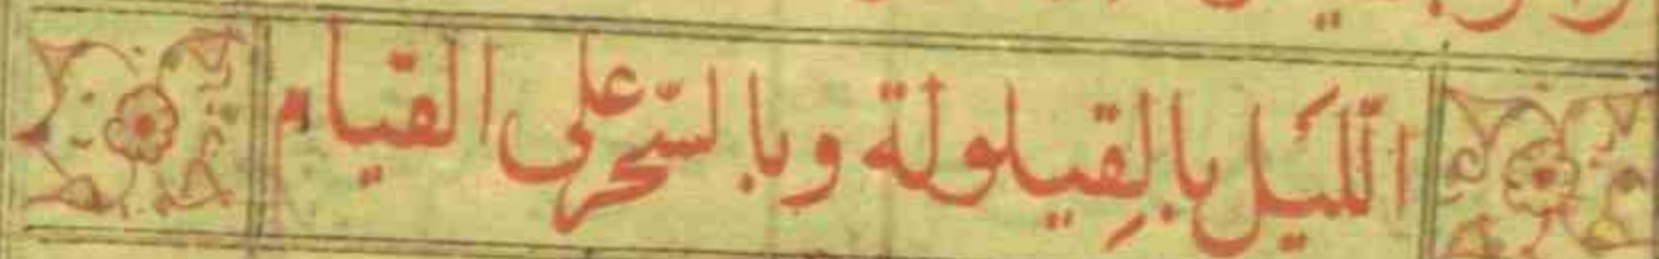 اللّيل بالقِيلولة وبالسّحر على القيام